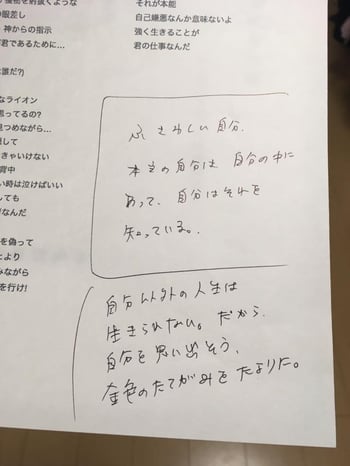 を射抜くような
の眼差し
神からの指示
が君であるために…
は誰だ?)
なライオン
思ってるの?
見つめながら…
隠して
きゃいけない
背中
い時は泣けばいい
しても
なんだ
を偽って
とより
みながら
を行け!
それが本能
自己嫌悪なんか意味ないよ
強く生きることが
君の仕事なんだ
ふさわしい自分、
本当の自分は 自分の中に
あって、自分はそれを
知っている。
自分以外の人生は
生きられない。だから、
自分を思い出そう、
金色のたてがみをたよりに。